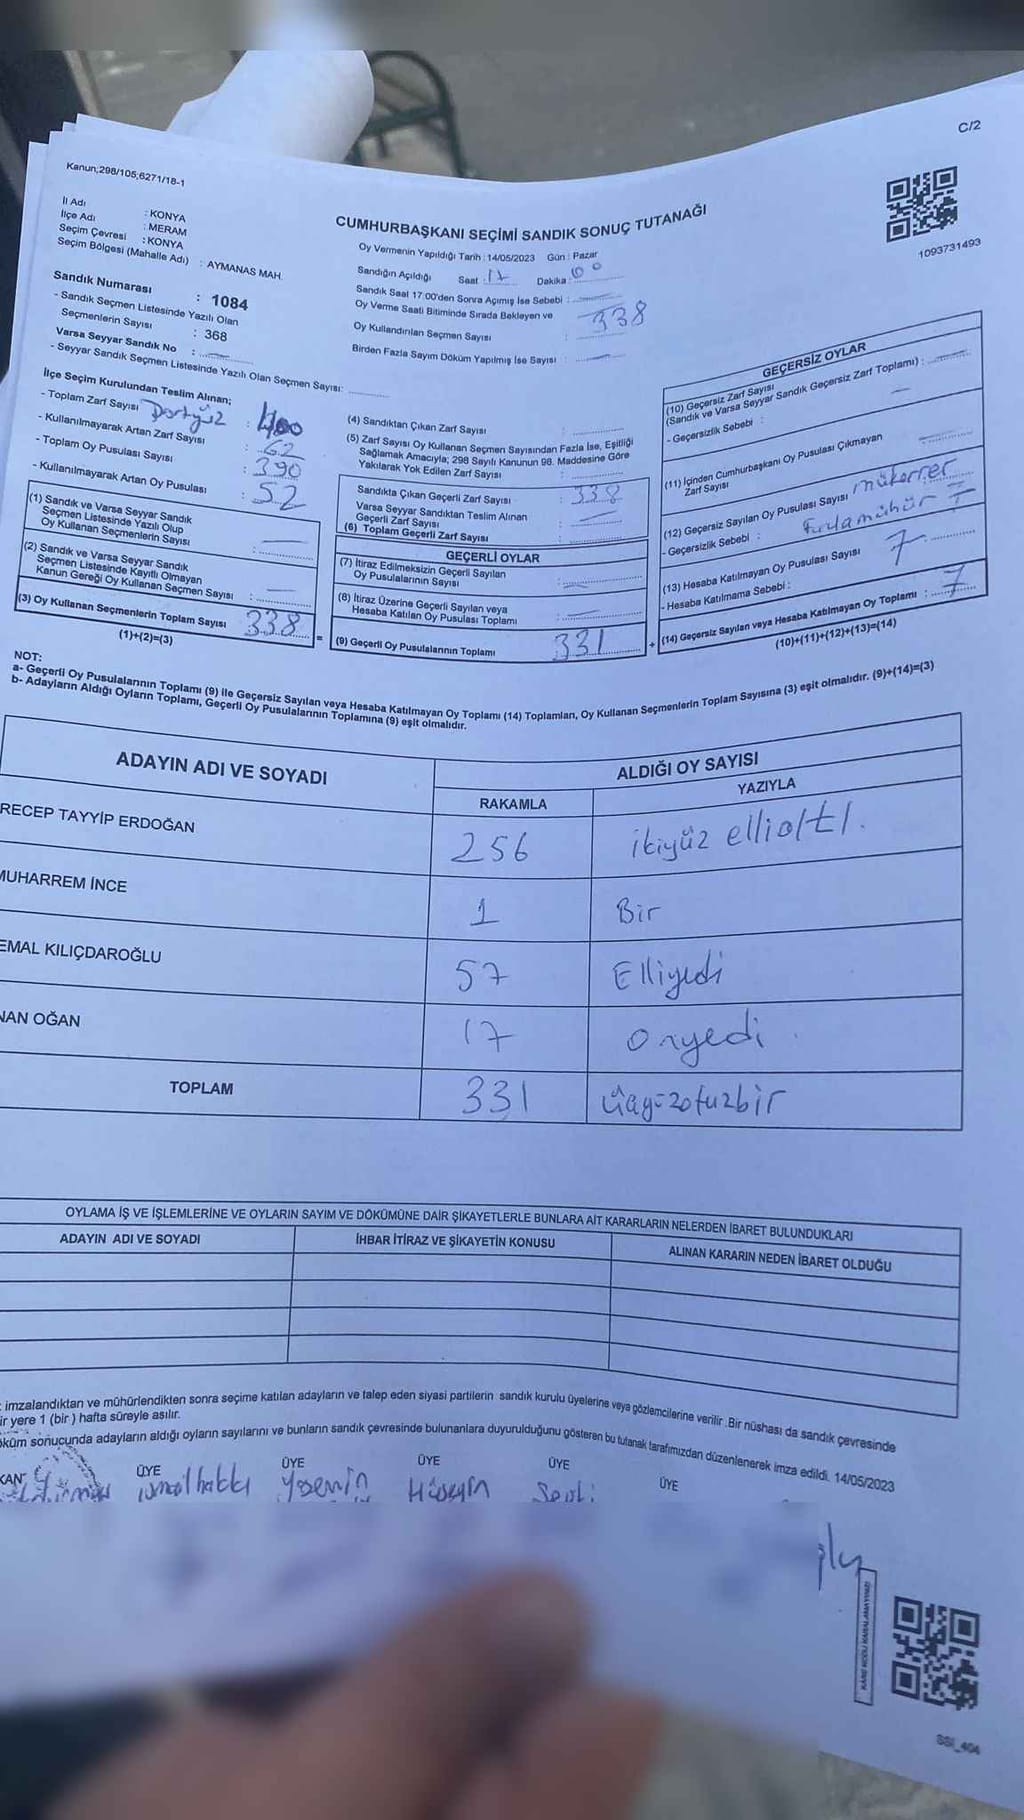 C/2
Kanun;298/105;6271/18-1
1093731493
CUMHURBAŞKANI SEÇİMİ SANDIK SONUÇ TUTANAĞI
İl Adı : KONYA
İlçe Adı : MERAM
Seçim Çevresi : KONYA
Seçim Bölgesi (Mahalle Adı) : AYMANAS MAH.
Sandık Numarası : 1084
- Sandık Seçmen Listesinde Yazılı Olan
Seçmenlerin Sayısı : 368
Varsa Seyyar Sandık No :
- Seyyar Sandık Seçmen Listesinde Yazılı Olan Seçmen Sayısı:
Oy Vermenin Yapıldığı Tarih : 14/05/2023 Gün : Pazar
Sandığın Açıldığı Saat : 17 Dakika : 00
Sandık Saat 17:00'den Sonra Açımış İse Sebebi :
Oy Verme Saati Bitiminde Sırada Bekleyen ve
Oy Kullandırılan Seçmen Sayısı : 338
Birden Fazla Sayım Döküm Yapılmış İse Sayısı :
İlçe Seçim Kurulundan Teslim Alınan;
- Toplam Zarf Sayısı Dörtyüz : 400
- Kullanılmayarak Artan Zarf Sayısı : 62
- Toplam Oy Pusulası Sayısı : 390
- Kullanılmayarak Artan Oy Pusulası : 52
(1) Sandık ve Varsa Seyyar Sandık
Seçmen Listesinde Yazılı Olup
Oy Kullanan Seçmenlerin Sayısı :
(2) Sandık ve Varsa Seyyar Sandık
Seçmen Listesinde Kayıtlı Olmayan
Kanun Gereği Oy Kullanan Seçmen Sayısı :
(3) Oy Kullanan Seçmenlerin Toplam Sayısı 338 =
(1)+(2)=(3)
(4) Sandıktan Çıkan Zarf Sayısı :
(5) Zarf Sayısı Oy Kullanan Seçmen Sayısından Fazla İse, Eşitliği
Sağlamak Amacıyla; 298 Sayılı Kanunun 98. Maddesine Göre
Yakılarak Yok Edilen Zarf Sayısı :
Sandıkta Çıkan Geçerli Zarf Sayısı : 338
Varsa Seyyar Sandıktan Teslim Alınan
Geçerli Zarf Sayısı :
(6) Toplam Geçerli Zarf Sayısı :
GEÇERLİ OYLAR
(7) İtiraz Edilmeksizin Geçerli Sayılan
Oy Pusulalarının Sayısı :
(8) İtiraz Üzerine Geçerli Sayılan veya
Hesaba Katılan Oy Pusulası Toplamı :
(9) Geçerli Oy Pusulalarının Toplamı 331 +
GEÇERSİZ OYLAR
(10) Geçersiz Zarf Sayısı
(Sandık ve Varsa Seyyar Sandık Geçersiz Zarf Toplamı) :
- Geçersizlik Sebebi :
(11) İçinden Cumhurbaşkanı Oy Pusulası Çıkmayan
Zarf Sayısı
(12) Geçersiz Sayılan Oy Pusulası Sayısı mükerrer
- Geçersizlik Sebebi : mühür
(13) Hesaba Katılmayan Oy Pusulası Sayısı 7
- Hesaba Katılmama Sebebi :
(14) Geçersiz Sayılan veya Hesaba Katılmayan Oy Toplamı : 7
(10)+(11)+(12)+(13)=(14)
NOT:
a- Geçerli Oy Pusulalarının Toplamı (9) ile Geçersiz Sayılan veya Hesaba Katılmayan Oy Toplamı (14) Toplamları, Oy Kullanan Seçmenlerin Toplam Sayısına (3) eşit olmalıdır. (9)+(14)=(3)
b- Adayların Aldığı Oyların Toplamı, Geçerli Oy Pusulalarının Toplamına (9) eşit olmalıdır.
ADAYIN ADI VE SOYADI
ALDIĞI OY SAYISI
RAKAMLA
YAZIYLA
RECEP TAYYİP ERDOĞAN 256 ikiyüz ellialtı.
MUHARREM İNCE 1 Bir
EMAL KILIÇDAROĞLU 57 Elliyedi
NAN OĞAN 17 onyedi
TOPLAM 331 üçyüzotuzbir
OYLAMA İŞ VE İŞLEMLERİNE VE OYLARIN SAYIM VE DÖKÜMÜNE DAİR ŞİKAYETLERLE BUNLARA AİT KARARLARIN NELERDEN İBARET BULUNDUKLARI
ADAYIN ADI VE SOYADI
İHBAR İTİRAZ VE ŞİKAYETİN KONUSU
ALINAN KARARIN NEDEN İBARET OLDUĞU
imzalandıktan ve mühürlendikten sonra seçime katılan adayların ve talep eden siyasi partilerin sandık kurulu üyelerine veya gözlemcilerine verilir. Bir nüshası da sandık çevresinde
ir yere 1 (bir ) hafta süreyle asılır.
öküm sonucunda adayların aldığı oyların sayılarını ve bunların sandık çevresinde bulunanlara duyurulduğunu gösteren bu tutanak tarafımızdan düzenlenerek imza edildi. 14/05/2023
KAN ÜYE ÜYE ÜYE ÜYE ÜYE
ismailhakkı Yasemin Hüseyin
SSI_404